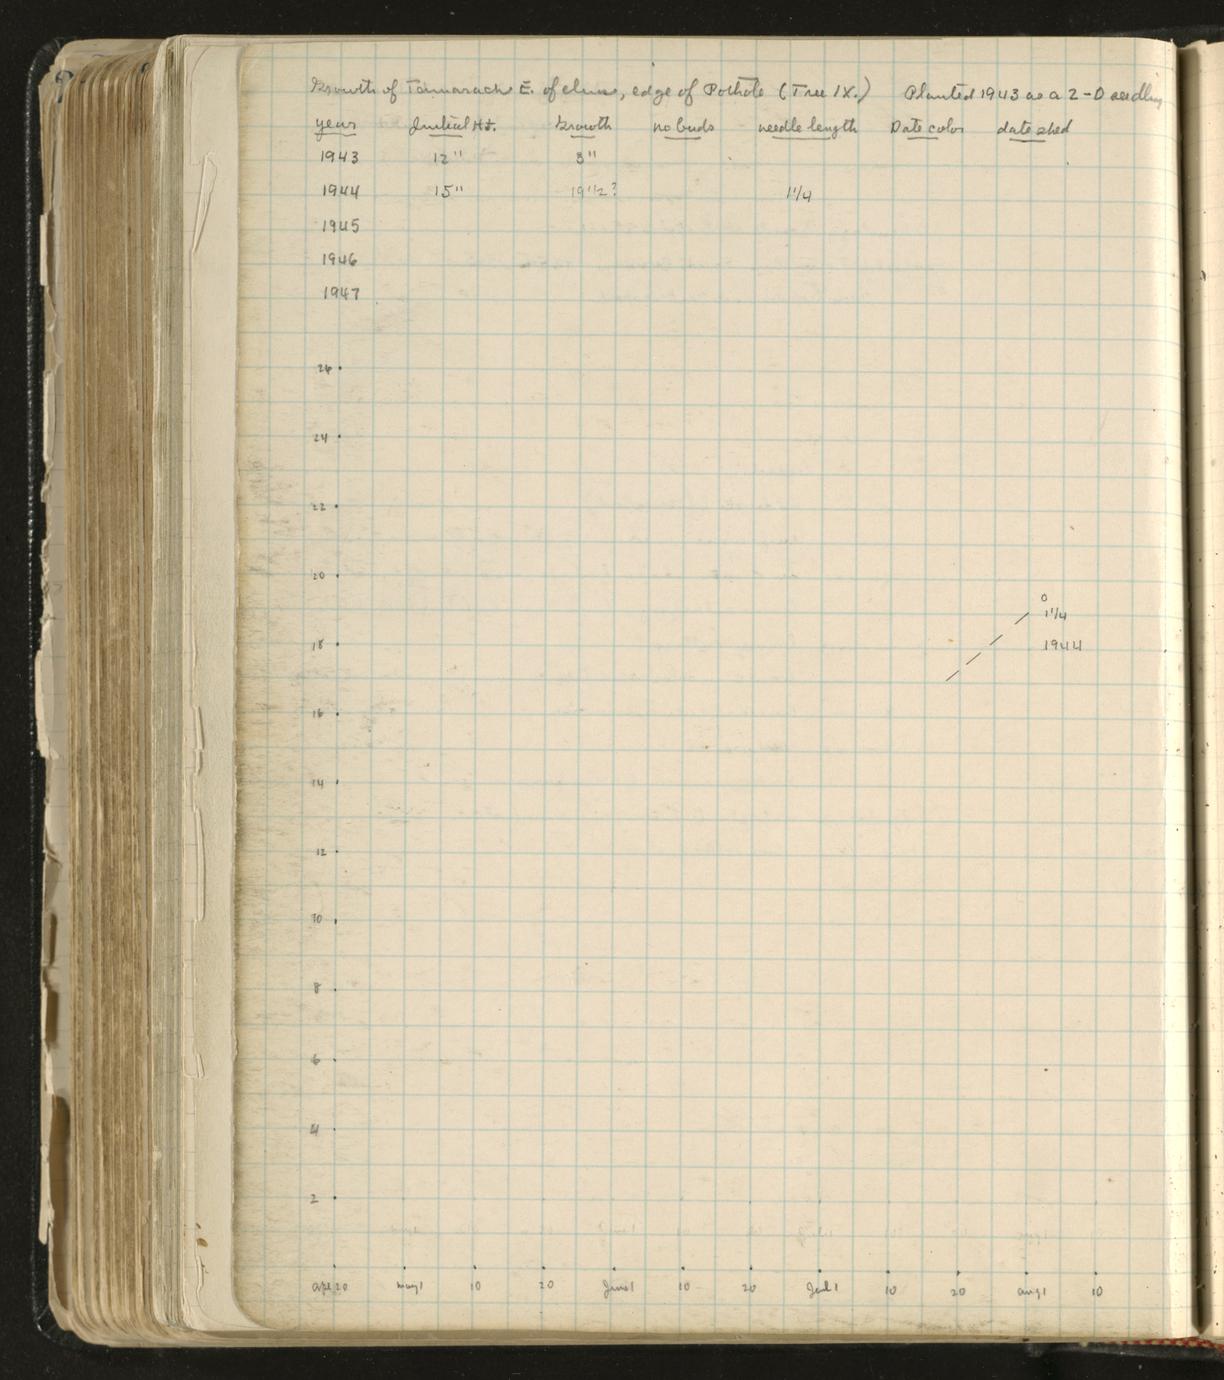 Growth of Tamarack E. of elms, edge of Pothole (Tree IX.) Planted 1943 as a 2-0 seedling
year Initial Ht. Growth no buds needle length Date color date shed
1943 12" 3"
1944 15" 19 1/2? 1 1/4
1945
1946
1947
26
24
22
20
0
1 1/4
18 1944
16
14
12
10
8
6
4
2
apr 20 may 1 10 20 June 1 10 20 Jul 1 10 20 aug 1 10